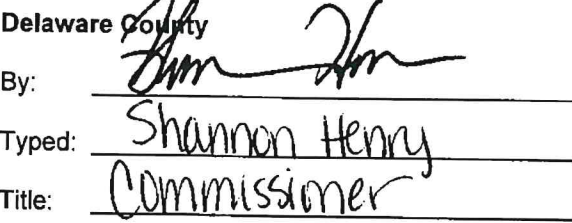 Delaware County
By:
Typed: Shannon Henry
Title: Commissioner